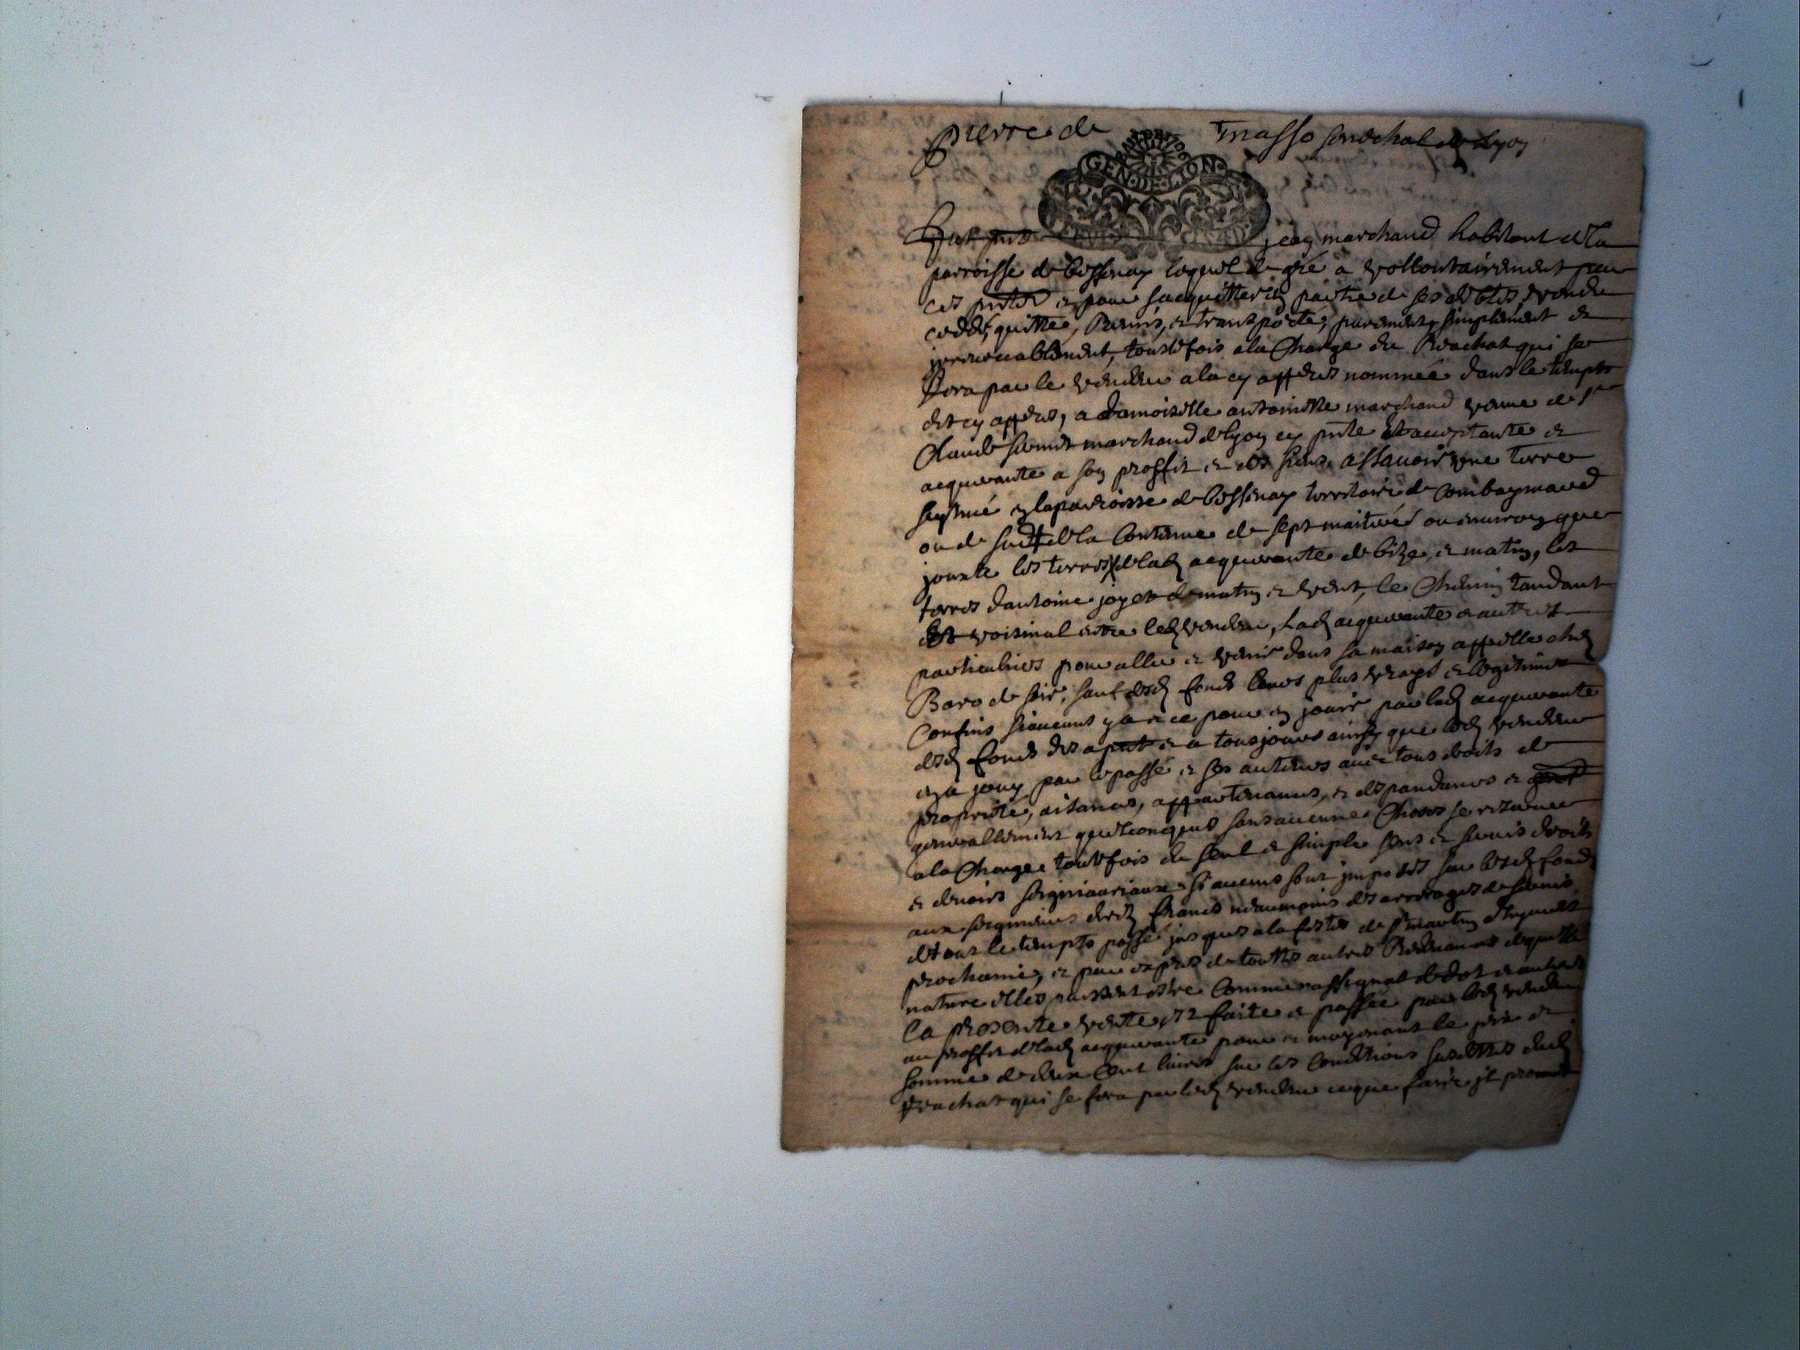 Pierre de masso senechal de lyon
GEN·DE·LION
jean marchand habitant de la
parroisse de bessenay lequel de gré a vollontairement par
ces pntes et pour sacquitter en partie de ses debtes vendu
ceddé, quitté, Remis, et transporté, purement, simplement et
irrevocablement, toutefois a la Charge du Reachat qui se
fera par le vendeur a la cy appres nommée dans le temps
dit cy appres, a damoiselle antoinette marchand veuve de Sr
Claude marchand de lyon cy pnte et acceptante et
acquerante a son proffit et des siens assavoir une terre
scytuée en la parroisse de bessenay territoire de
ou de la Contenue de sept ou environ que
jouxte les terres de lad acquerante de bize, et matin, les
terres dantoine joyet de matin et vent, le Chemin tandant
voisinal entre led vendeur, Lad acquerante et autres
particuliers pour aller et venir dans sa maison appellée chez
Baro de soir, sauf desd fonds leurs plus vrays et legitimes
Confins siaucuns y a et ce pour en jouir par lad acquerante
desd fonds des a pnt et a tousjours ainsy que led vendeur
en a jouy par le passé et ses autheurs avec tous droits de
proprieté, aisances, appartenances, et despandances et
generallement quelconques sans aucunes Choses se reserver
a la Charge toutefois du seul et simple sens et servis droits
et devoirs seigneuriaux si aucuns sont imposés sur lesd fonds
aux seigneurs francs neanmoins des arrerages de servis
de tout le temps passé jusques a la feste de st martin dhyver
prochaine, et par expres de touttes autres Redevances de quelle
nature elles puissent estre Comme assignat de dot et autres
La presente vente est faite et passée par led vendeur
au proffit de lad acquerante pour et moyenant le prix et
somme de deux Cent livres sur les Conditions susdittes dud
Reachat qui se fera par led vendeur ce que faire jl promet